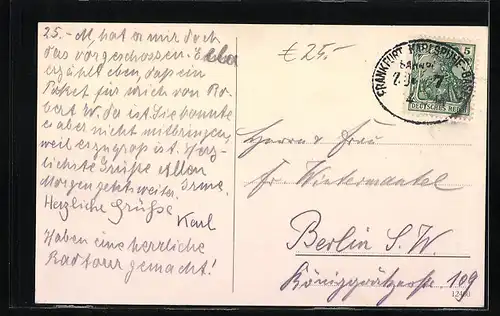 25.-M, hat er mir doch
das vorgeschossen. Ella
erzählt eben, daß ein
Paket für mich von Ro-
bert W. da ist. Sie konnte
es aber nicht mitbringen,
weil er zu groß ist. Herz-
lichste Grüße Allen
Morgen geht's weiter. Irme.
Herzliche Grüße
Karl
Haben eine herrliche
Radtour gemacht!
£ 25.-
FRANKFURT KARLSRUHE
BAHNPOST
5
DEUTSCHES REICH
Herrn u. Frau
Fr. Wintermantel
Berlin S.W.
Königgrätzerstr 109